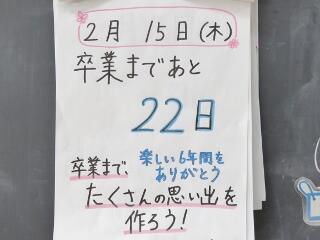 2月 15日(木)
卒業まであと
22日
楽しい6年間を
ありがとう
卒業まで、
たくさんの思い出を
作ろう!